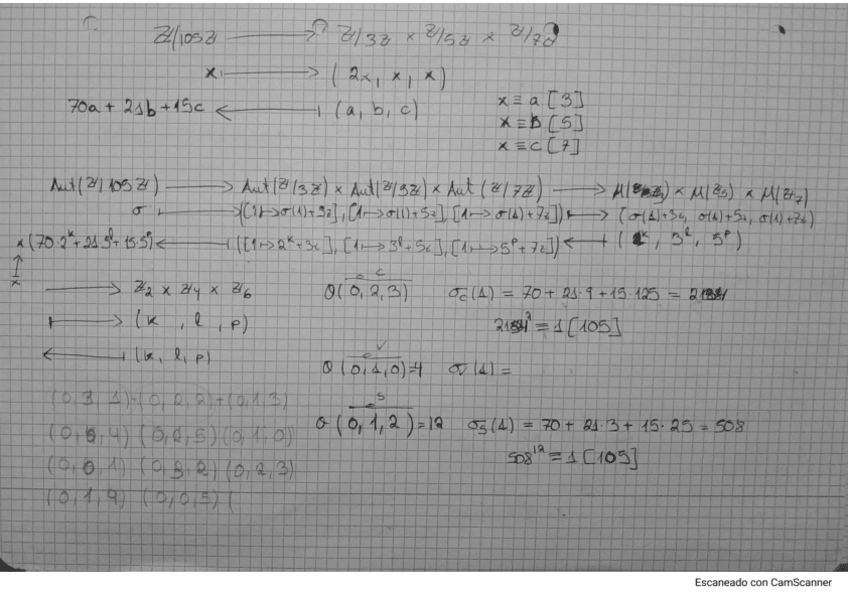 Z/105Z ⟶ Z/3Z × Z/5Z × Z/7Z
x ⟼ (2x, x, x)
70a + 21b + 15c ⟵ (a, b, c)
x ≡ a [3]
x ≡ b [5]
x ≡ c [7]
Aut(Z/105Z) ⟶ Aut(Z/3Z) × Aut(Z/5Z) × Aut(Z/7Z) ⟶ × μ(Z5) × μ(Z7)
σ ⟼ ([1↦σ(1)+3Z], [1↦σ(1)+5Z], [1↦σ(1)+7Z]) ⟼ (σ(1)+3Z, σ(1)+5Z, σ(1)+7Z)
x(70·2^k + 21·3^l + 15·5^p) ⟵ ([1↦2^k+3Z], [1↦3^l+5Z], [1↦5^p+7Z]) ⟵ ( , 3^l, 5^p)
↑
x
⟶ Z2 × Z4 × Z6
⟼ (k, l, p)
⟵ (k, l, p)
c
θ(0,2,3) σc(1) = 70 + 21·9 + 15·125 =
≡ 1 [105]
θ(0,1,0)=4 σ(1) =
s
θ(0,1,2)=12 σs(1) = 70 + 21·3 + 15·25 = 508
508^12 ≡ 1 [105]
(0,3,1) (0,2,2) (0,1,3)
(0, ,4) (0,2,5) (0,1,0)
(0,0,1) (0,3,2) (0,2,3)
(0,1,4) (0,0,5) (
Escaneado con CamScanner